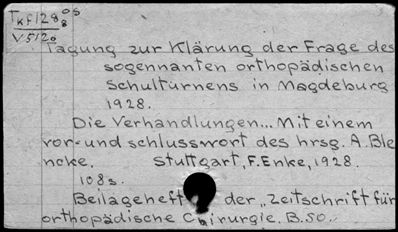 Tkf/28805
V5/20
Tagung zur Klärung der Frage des
sogennanten orthopädischen
Schulturnens in Magdeburg
1928.
Die Verhandlungen... Mit einem
vor-und schlusswort des hrsg. A. Ble
ncke. Stuttgart, F. Enke, 1928.
108s.
Beilageheft der „Zeitschrift für
orthopädische Chirurgie, B.50..